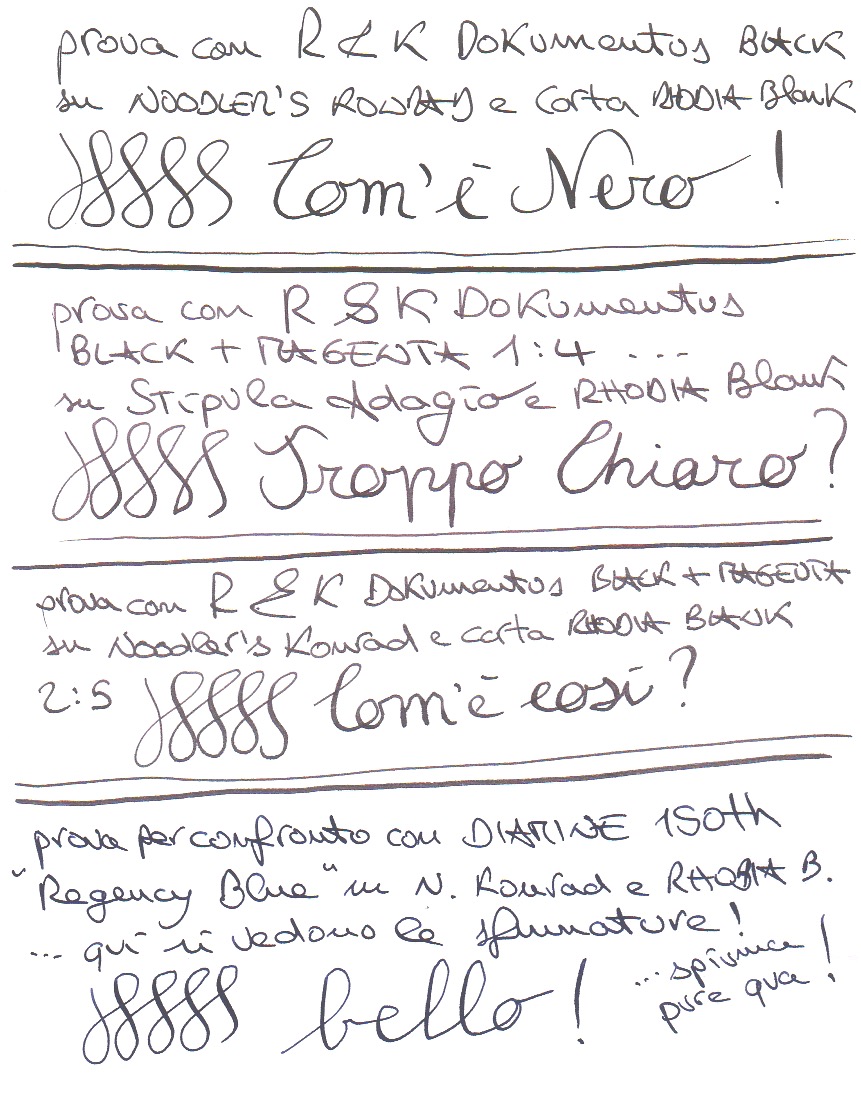 prova con R & K DOKumentus BLACK
su NOODLER'S KONRAD e carta RHODIA Blank
Com'è Nero !
prova con R & K DOKumentus
BLACK + MAGENTA 1:4 ...
su Stipula Adagio e RHODIA Blank
Troppo Chiaro ?
prova con R & K DOKumentus BLACK + MAGENTA
su Noodler's Konrad e carta RHODIA BLANK
2:5 Com'è così ?
prova per confronto con DIAMINE 150th
"Regency Blue" in N. Konrad e RHODIA B.
... qui si vedono le sfumature !
... spiuma
pure qua !
bello !